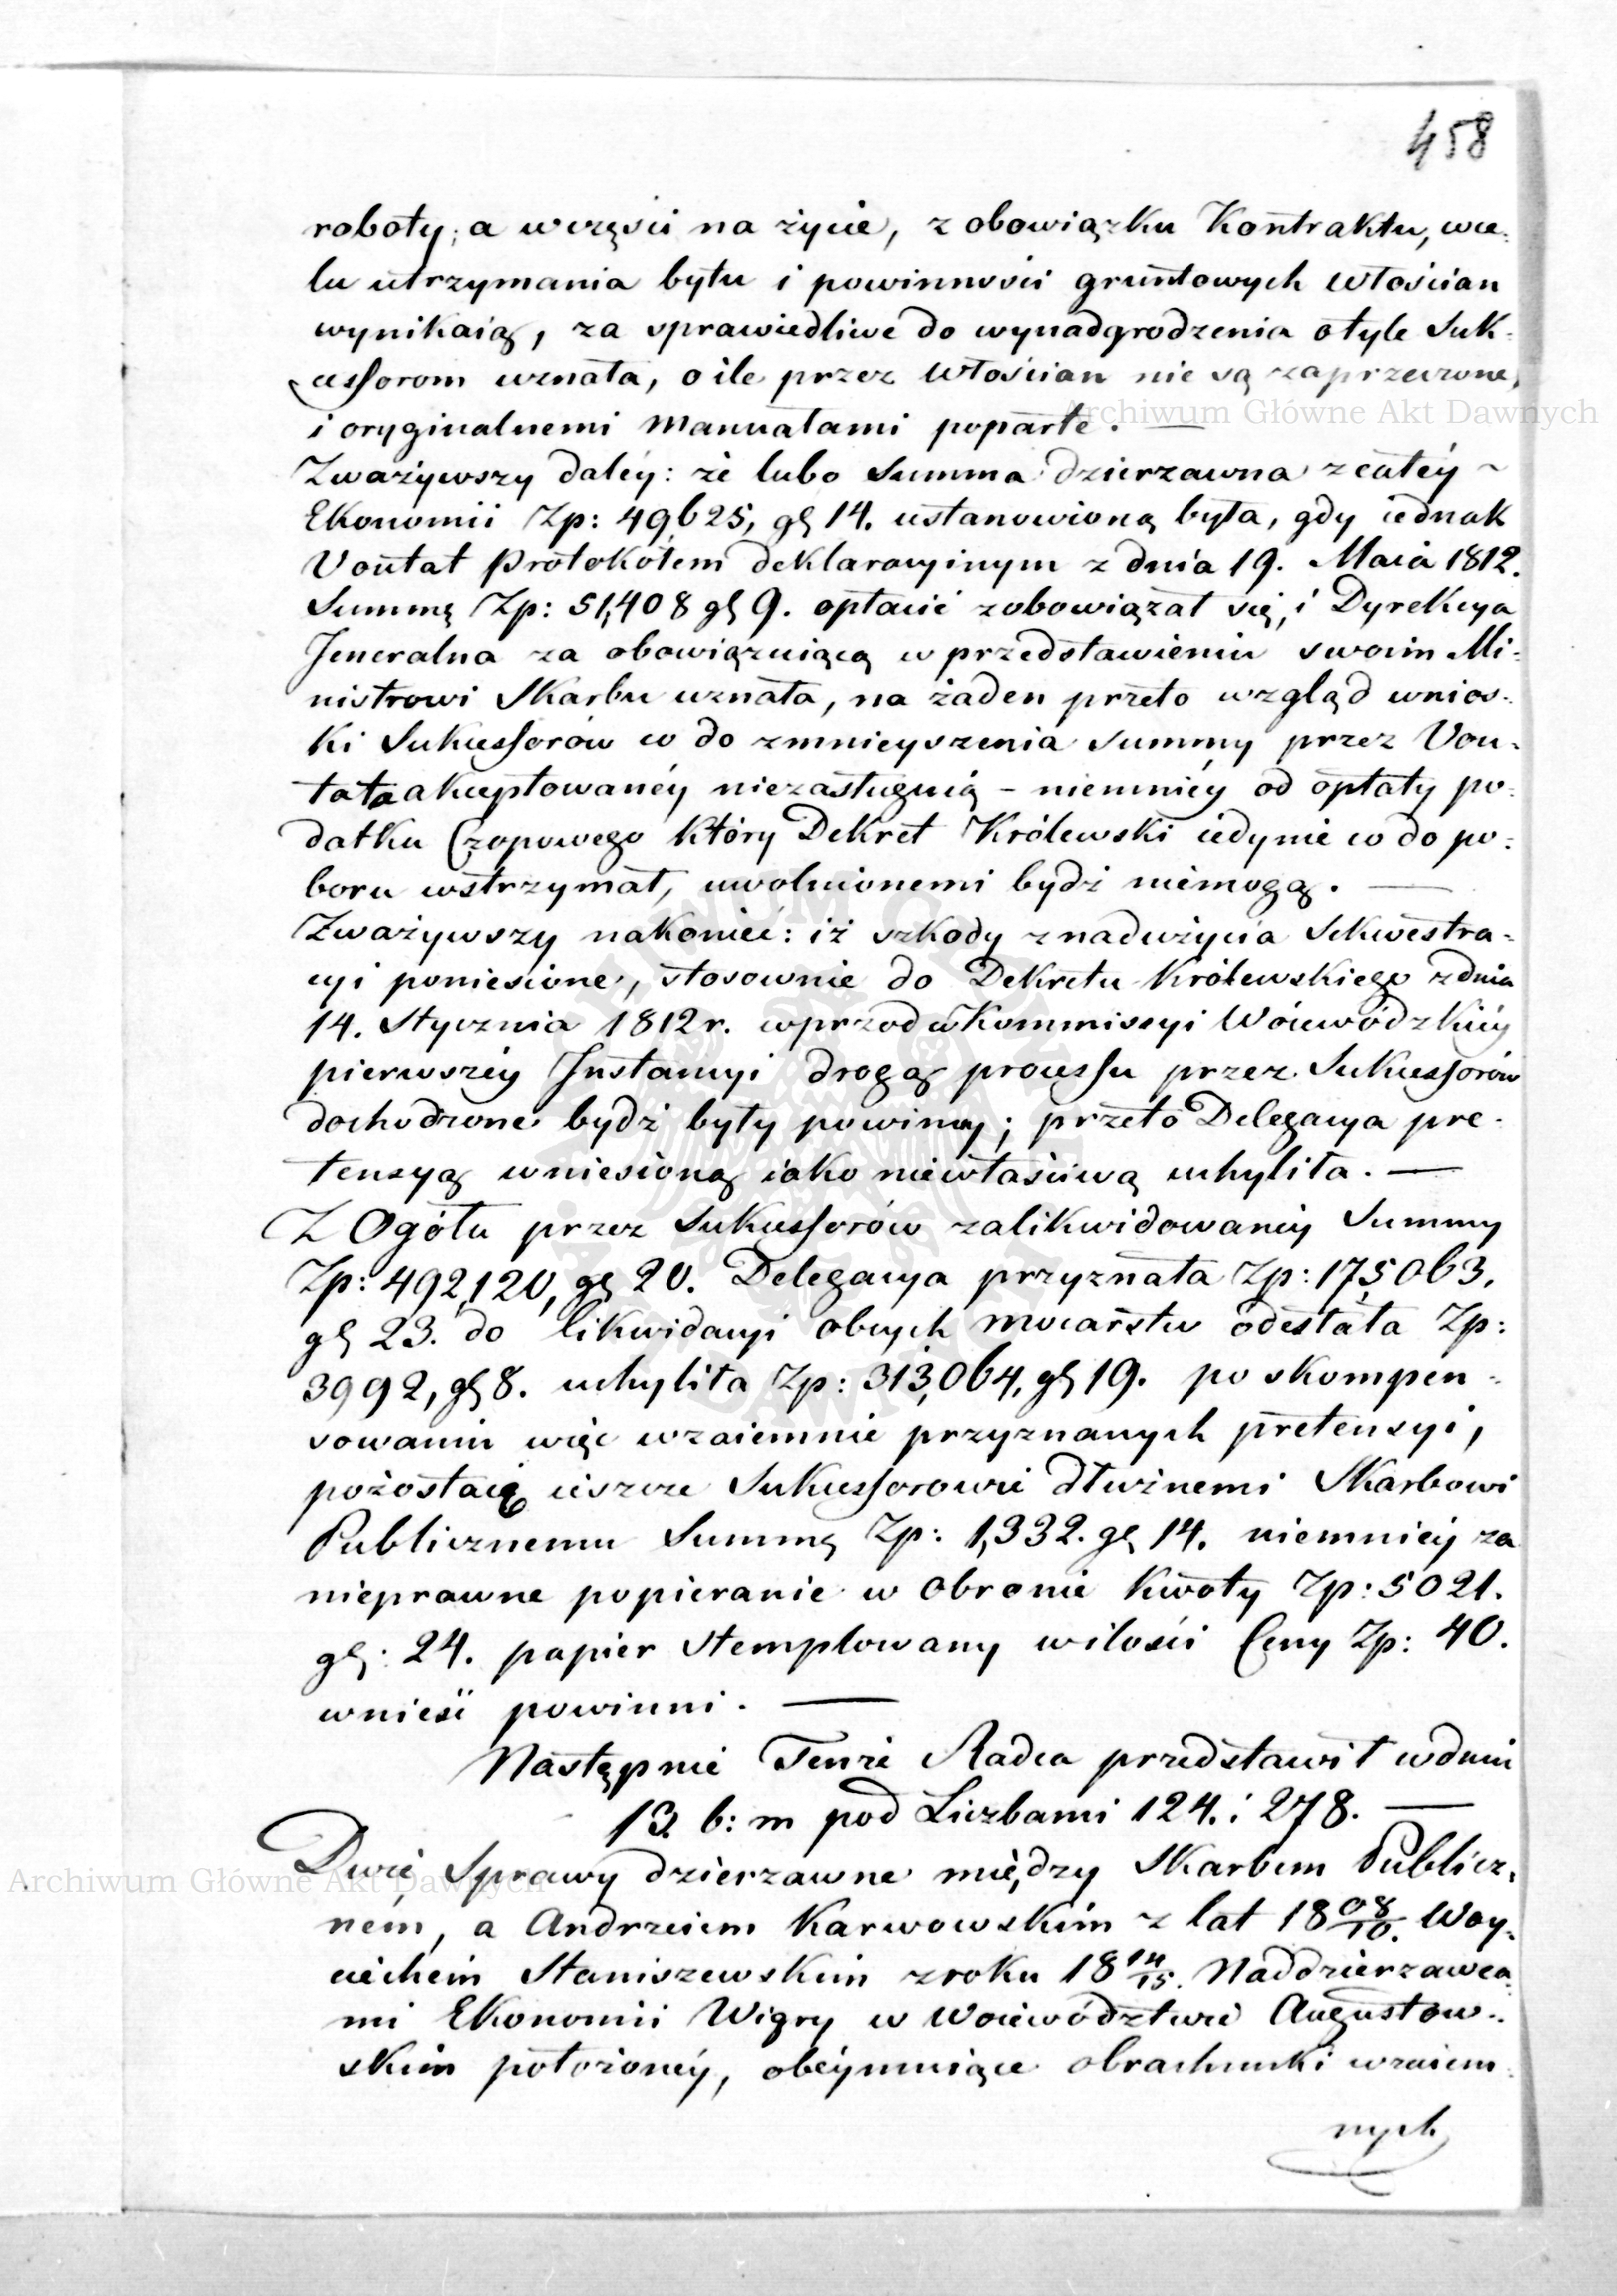 458
roboty; a wczęśći na życie, z obowiązku Kontraktu, wce-
lu utrzymania bytu i powinności gruntowych Włościan
wynikaią, za sprawiedliwe do wynadgrodzenia otyle Suk-
cessorom uznała, oile przez Włościan nie są zaprzeczone,
i oryginalnemi Manuałami poparte. —
Zważywszy daléy: że lubo Summa dzierzawna z całéy ~
Ekonomii Zp: 49,625, gl 14. ustanowioną była, gdy iednak
Voutat Protokołem deklaracyinym z dnia 19. Maia 1812.
Summę Zp: 51,408 gl 9. opłacić zobowiązał się, i Dyrekcya
Jeneralna za obowiązuiącą w przedstawieniu swoim Mi-
nistrowi Skarbu uznała, na żaden przeto wzgląd wnios-
ki Sukcessorów co do zmnieyszenia summy przez Vou-
tata akceptowanéy niezasługuią - niemniéy od opłaty po-
datku Czopowego który Dekret Królewski iedynie co do po-
boru wstrzymał, uwolnionemi bydź niemogą. —
Zważywszy nakoniec: iż szkody z nadużycia Sekwestra-
cyi poniesione, stosownie do Dekretu Królewskiego zdnia
14. Stycznia 1812 r. wprzod w Kommissyi Woiewódzkiéy
pierwszéy Instancyi drogą processu przez Sukcessorów
dochodzone bydź były powinny; przeto Delegacya pre-
tensyą wniesioną iako niewłaściwą uchyliła. —
Z Ogółu przez Sukcessorów zalikwidowanéy Summy
Zp: 492,120, gl 20. Delegacya przyznała Zp: 175,063,
gl 23. do likwidacyi obcych mocarstw odesłała Zp:
3992, gl 8. uchyliła Zp: 313,064, gl 19. po skompen-
sowaniu więc wzaiemnie przyznanych pretensyi,
pozostaią ieszcze Sukcessorowie dłużnemi Skarbowi
Publicznemu Summę Zp: 1,332. gl 14. niemniéy za
nieprawne popieranie w obronie Kwoty Zp: 5021.
gl: 24. papier stemplowany wilości Ceny Zp: 40.
wnieść powinni. —
Następnie Tenże Radca przedstawił wdniu
13. b: m pod Liczbami 124. i 278. —
Dwie Sprawy dzierzawne między Skarbem Publicz-
ném, a Andrzeiem Karwowskim z lat 18 08/10. Woy-
ciechem Staniszewskim zroku 18 14/15. Naddzierzawca-
mi Ekonomii Wigry w Woiewództwie Augustow-
skim położonéy, obéymuiące obrachunki wzaiem-
nych
Archiwum Główne Akt Dawnych
Archiwum Główne Akt Dawnych